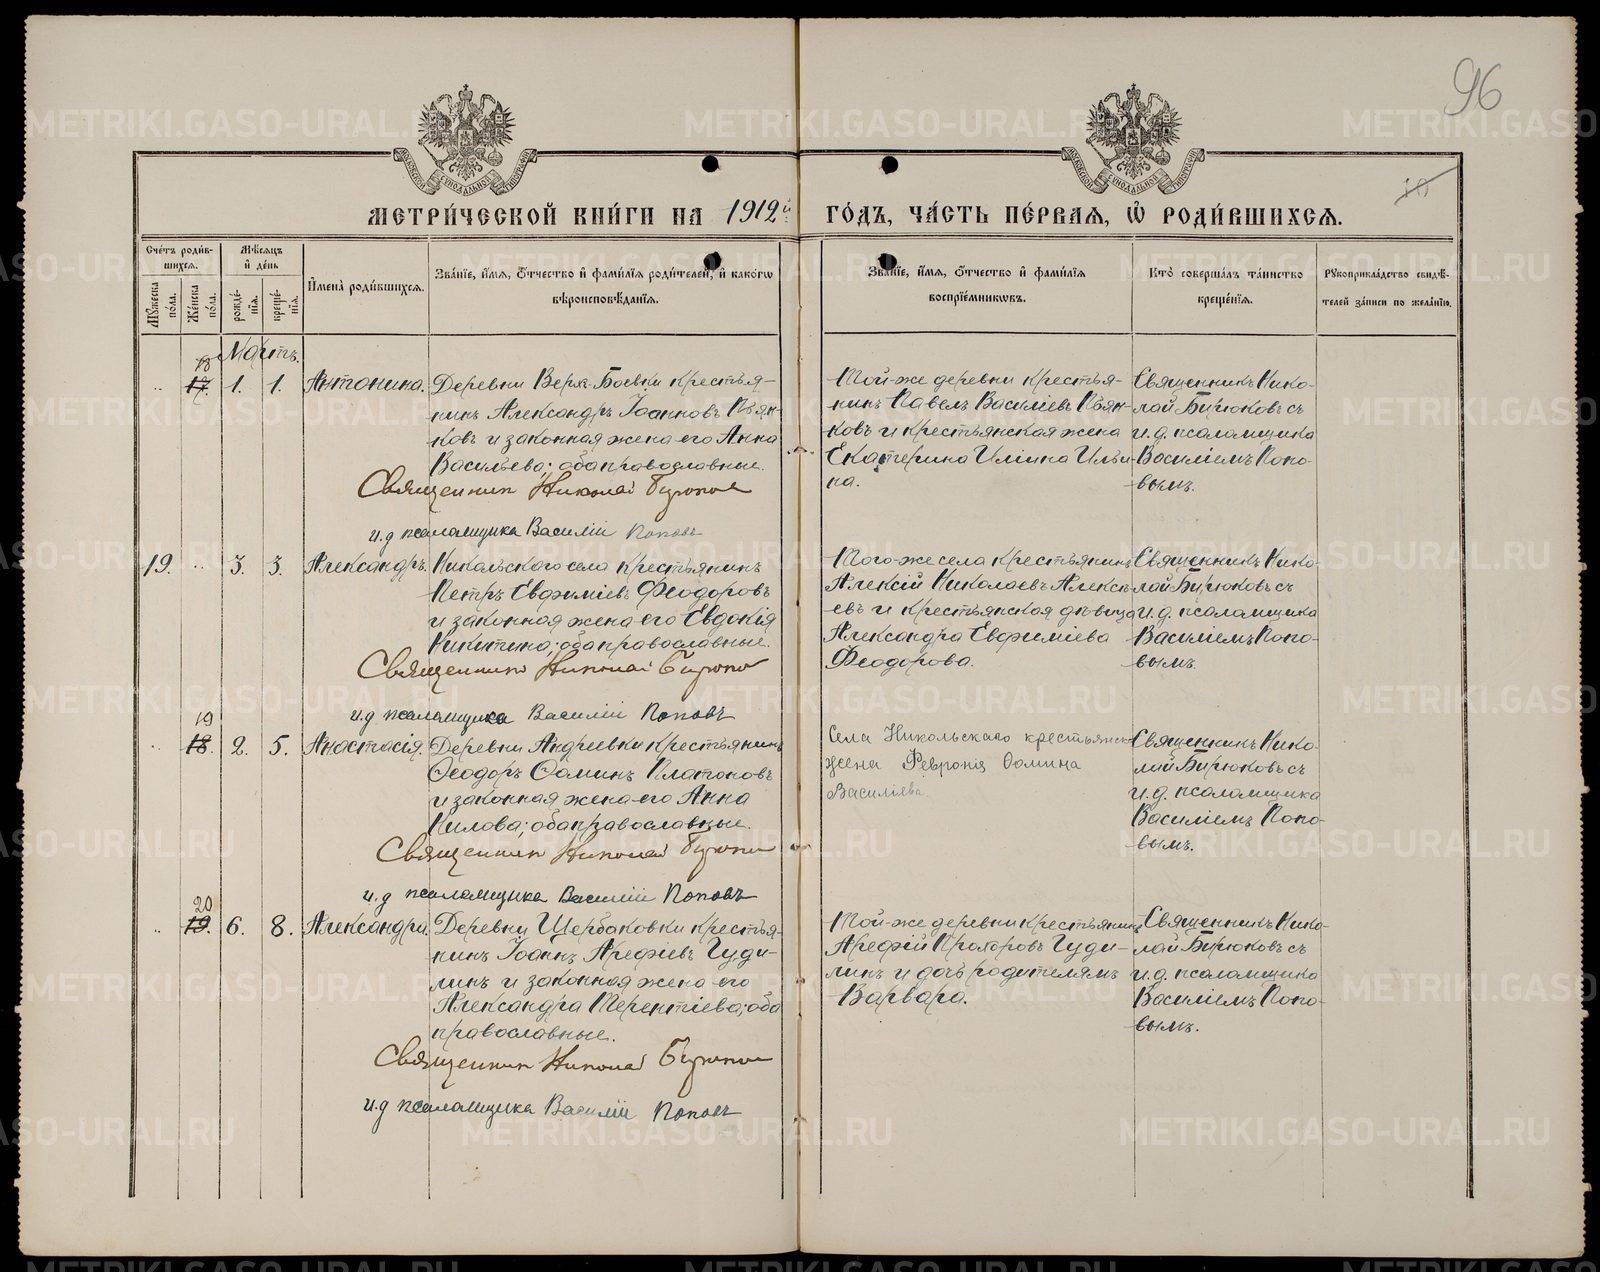 96
10
МЕТРИ́ЧЕСКОЙ КНИ́ГИ НА 1912й ГО́ДЪ, ЧА́СТЬ ПЕ́РВАЯ, Ѡ РОДИ́ВШИХСЯ.
Сче́тъ роди́в-
шихся.
Му́жеска по́ла.
Же́нска по́ла.
Мѣ́сяцъ
и де́нь
рожде́-
нія.
креще́-
нія.
Имена̀ роди́вшихся.
Зва́нїе, и́мя, о́тчество и фами́лїя роди́телей, и како́гѡ
вѣроисповѣ́данїя.
Зва́нїе, и́мя, о́тчество и фами́лїя
воспрїе́мникѡвъ.
Кто̀ соверша́лъ та́инство
креще́нїя.
Рꙋкоприкла́дство свидѣ́-
телей за́писи по жела́нїю.
Мартъ.
18
17. 1. 1. Антонина.
Деревни Верх-Боевки крестья-
нинъ Александръ Іоанновъ Пьян-
ковъ и законная жена его Анна
Васильева; оба православные.
Священник Николай Бирюков
и.д псаломщика Василій Поповъ
Той-же деревни крестья-
нинъ Павелъ Василіевъ Пьян-
ковъ и крестьянская жена
Екатерина Иліина Ильи-
на.
Священникъ Нико-
лай Бирюковъ съ
и.д. псаломщика
Василіемъ Попо-
вымъ.
19. 3. 3. Александръ.
Никольскаго села крестьянинъ
Петръ Евфиміевъ Феодоровъ
и законная жена его Евдокія
Никитина; оба православные.
Священник Николай Бирюков
и.д псаломщика Василій Поповъ
Того-же села крестьянинъ
Алексій Николаевъ Алексѣ-
евъ и крестьянская дѣвица
Александра Евфиміева
Феодорова.
Священникъ Нико-
лай Бирюковъ съ
и.д. псаломщика
Василіемъ Попо-
вымъ.
19
18. 2. 5. Анастасія.
Деревни Андреевки крестьянинъ
Ѳеодоръ Ѳоминъ Платоновъ
и законная жена его Анна
Нилова; оба православные.
Священник Николай Бирюков
и.д псаломщика Василій Поповъ
Села Никольскаго крестьянска
жена Февронія Ѳомина
Василіева
Священникъ Нико-
лай Бирюковъ съ
и.д. псаломщика
Василіемъ Попо-
вымъ.
20
19. 6. 8. Александра.
Деревни Щербаковки крестья-
нинъ Іоаннъ Арефіевъ Гуди-
линъ и законная жена его
Александра Терентіева; оба
православные.
Священник Николай Бирюков
и.д псаломщика Василій Поповъ
Той-же деревни крестьянинъ
Арефій Прохоровъ Гуди-
линъ и дочь родителямъ
Варвара.
Священникъ Нико-
лай Бирюковъ съ
и.д. псаломщика
Василіемъ Попо-
вымъ.
METRIKI.GASO-URAL.RU